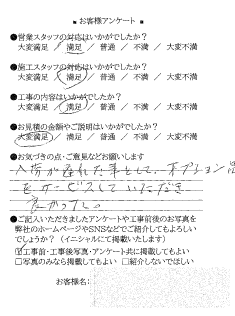 ■ お客様アンケート ■
●営業スタッフの対応はいかがでしたか?
大変満足 / 満足 / 普通 / 不満 / 大変不満
●施工スタッフの対応はいかがでしたか?
大変満足 / 満足 / 普通 / 不満 / 大変不満
●工事の内容はいかがでしたか?
大変満足 / 満足 / 普通 / 不満 / 大変不満
●お見積の金額やご説明はいかがでしたか?
大変満足 / 満足 / 普通 / 不満 / 大変不満
●お気づきの点・ご意見などお願いします
入荷が遅れた事として、オプション
をサービスしていただき
良かったです。
●ご記入いただきましたアンケートや工事前後のお写真を
弊社のホームページやSNSなどでご紹介してもよろしい
でしょうか? (イニシャルにて掲載いたします)
☑工事前・工事後写真・アンケート共に掲載してもよい
□写真のみなら掲載してもよい □紹介しないでほしい
お客様名: